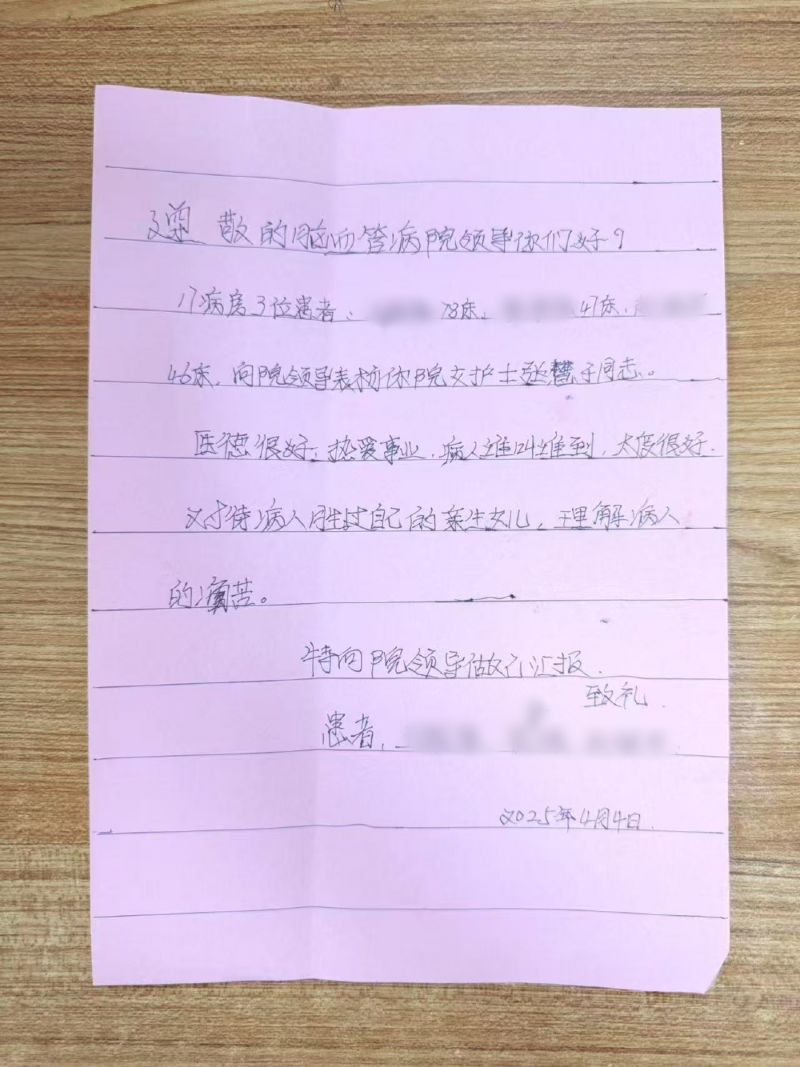 尊敬的脑血管病院领导你们好?
17病房3位患者: 78床, 47床,
46床, 向院领导表扬你院女护士张慧子同志。
医德很好, 热爱事业, 病人谁叫谁到, 太度很好.
对待病人胜过自己的亲生女儿, 理解病人
的痛苦。
特向院领导做汇报.
致礼.
患者,
2025年4月4日.